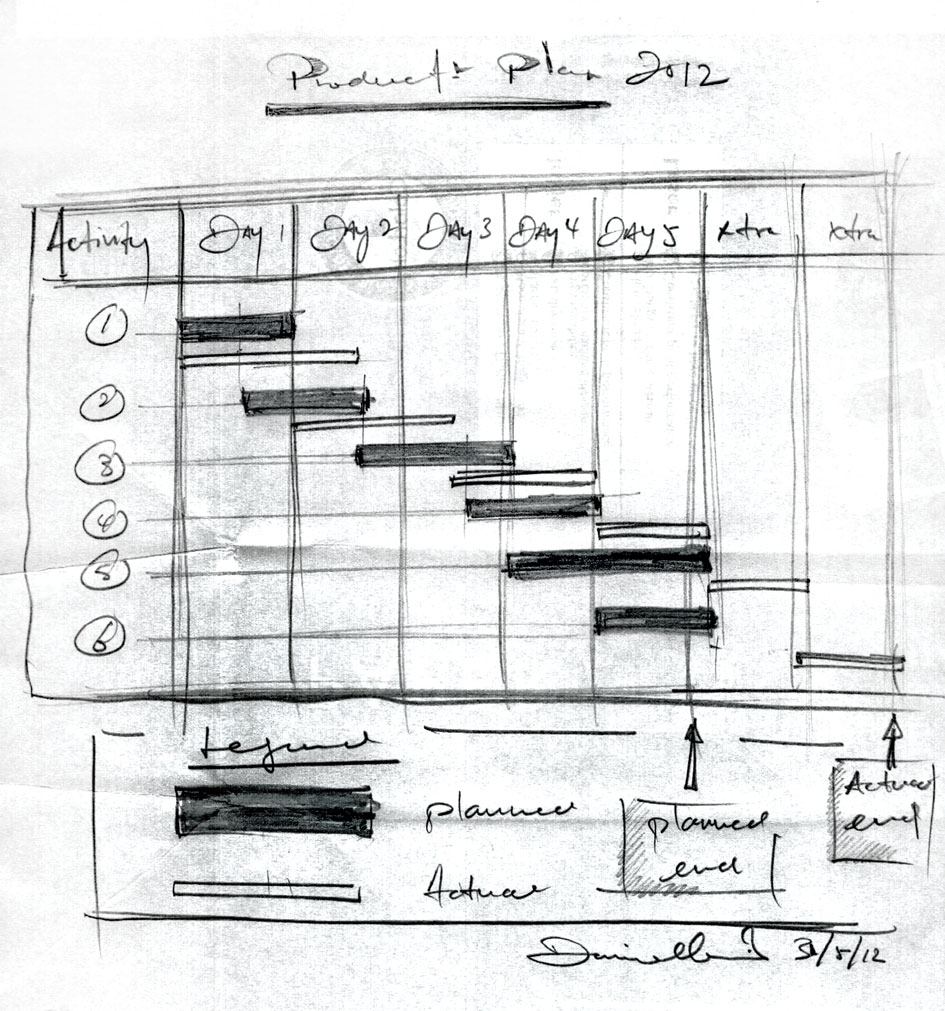 Product Plan 2012
Activity Day 1 Day 2 Day 3 Day 4 Day 5 xtra xtra
1
2
3
4
5
6
Legend
planned
Actual
planned
end
Actual
end
31/5/12